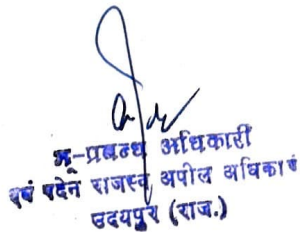 भू-प्रबन्ध अधिकारी
एवं पदेन राजस्व अपील अधिकारी
उदयपुर (राज.)